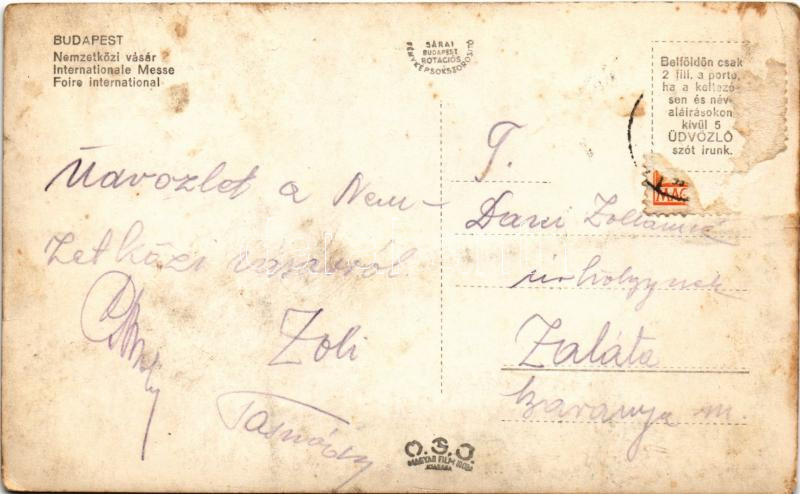 BUDAPEST
Nemzetközi vásár
Internationale Messe
Foire international
SÁRAI
BUDAPEST
ROTACIÓS
FÉNYKÉPSOKSZOROSITÓ
Belföldön csak
2 fill. a porto,
ha a keltezé-
sen és név-
aláírásokon
kívül 5
ÜDVÖZLŐ
szót írunk.
MAG
Üdvözlet a Nem-
zetközi vásárról
Zoli
Tasnády
T.
Darei Zoltánné
úrhölgynek
Zaláta
baranya m.
M.F.I.
MAGYAR FILM IRODA
KIADÁSA